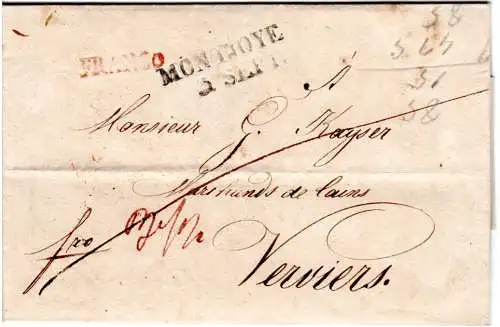 FRANCO
MONTJOYE
5 SEPT.
58
31
58
A
Monsieur G. Kayser
Marchands de lains
fro
Verviers.